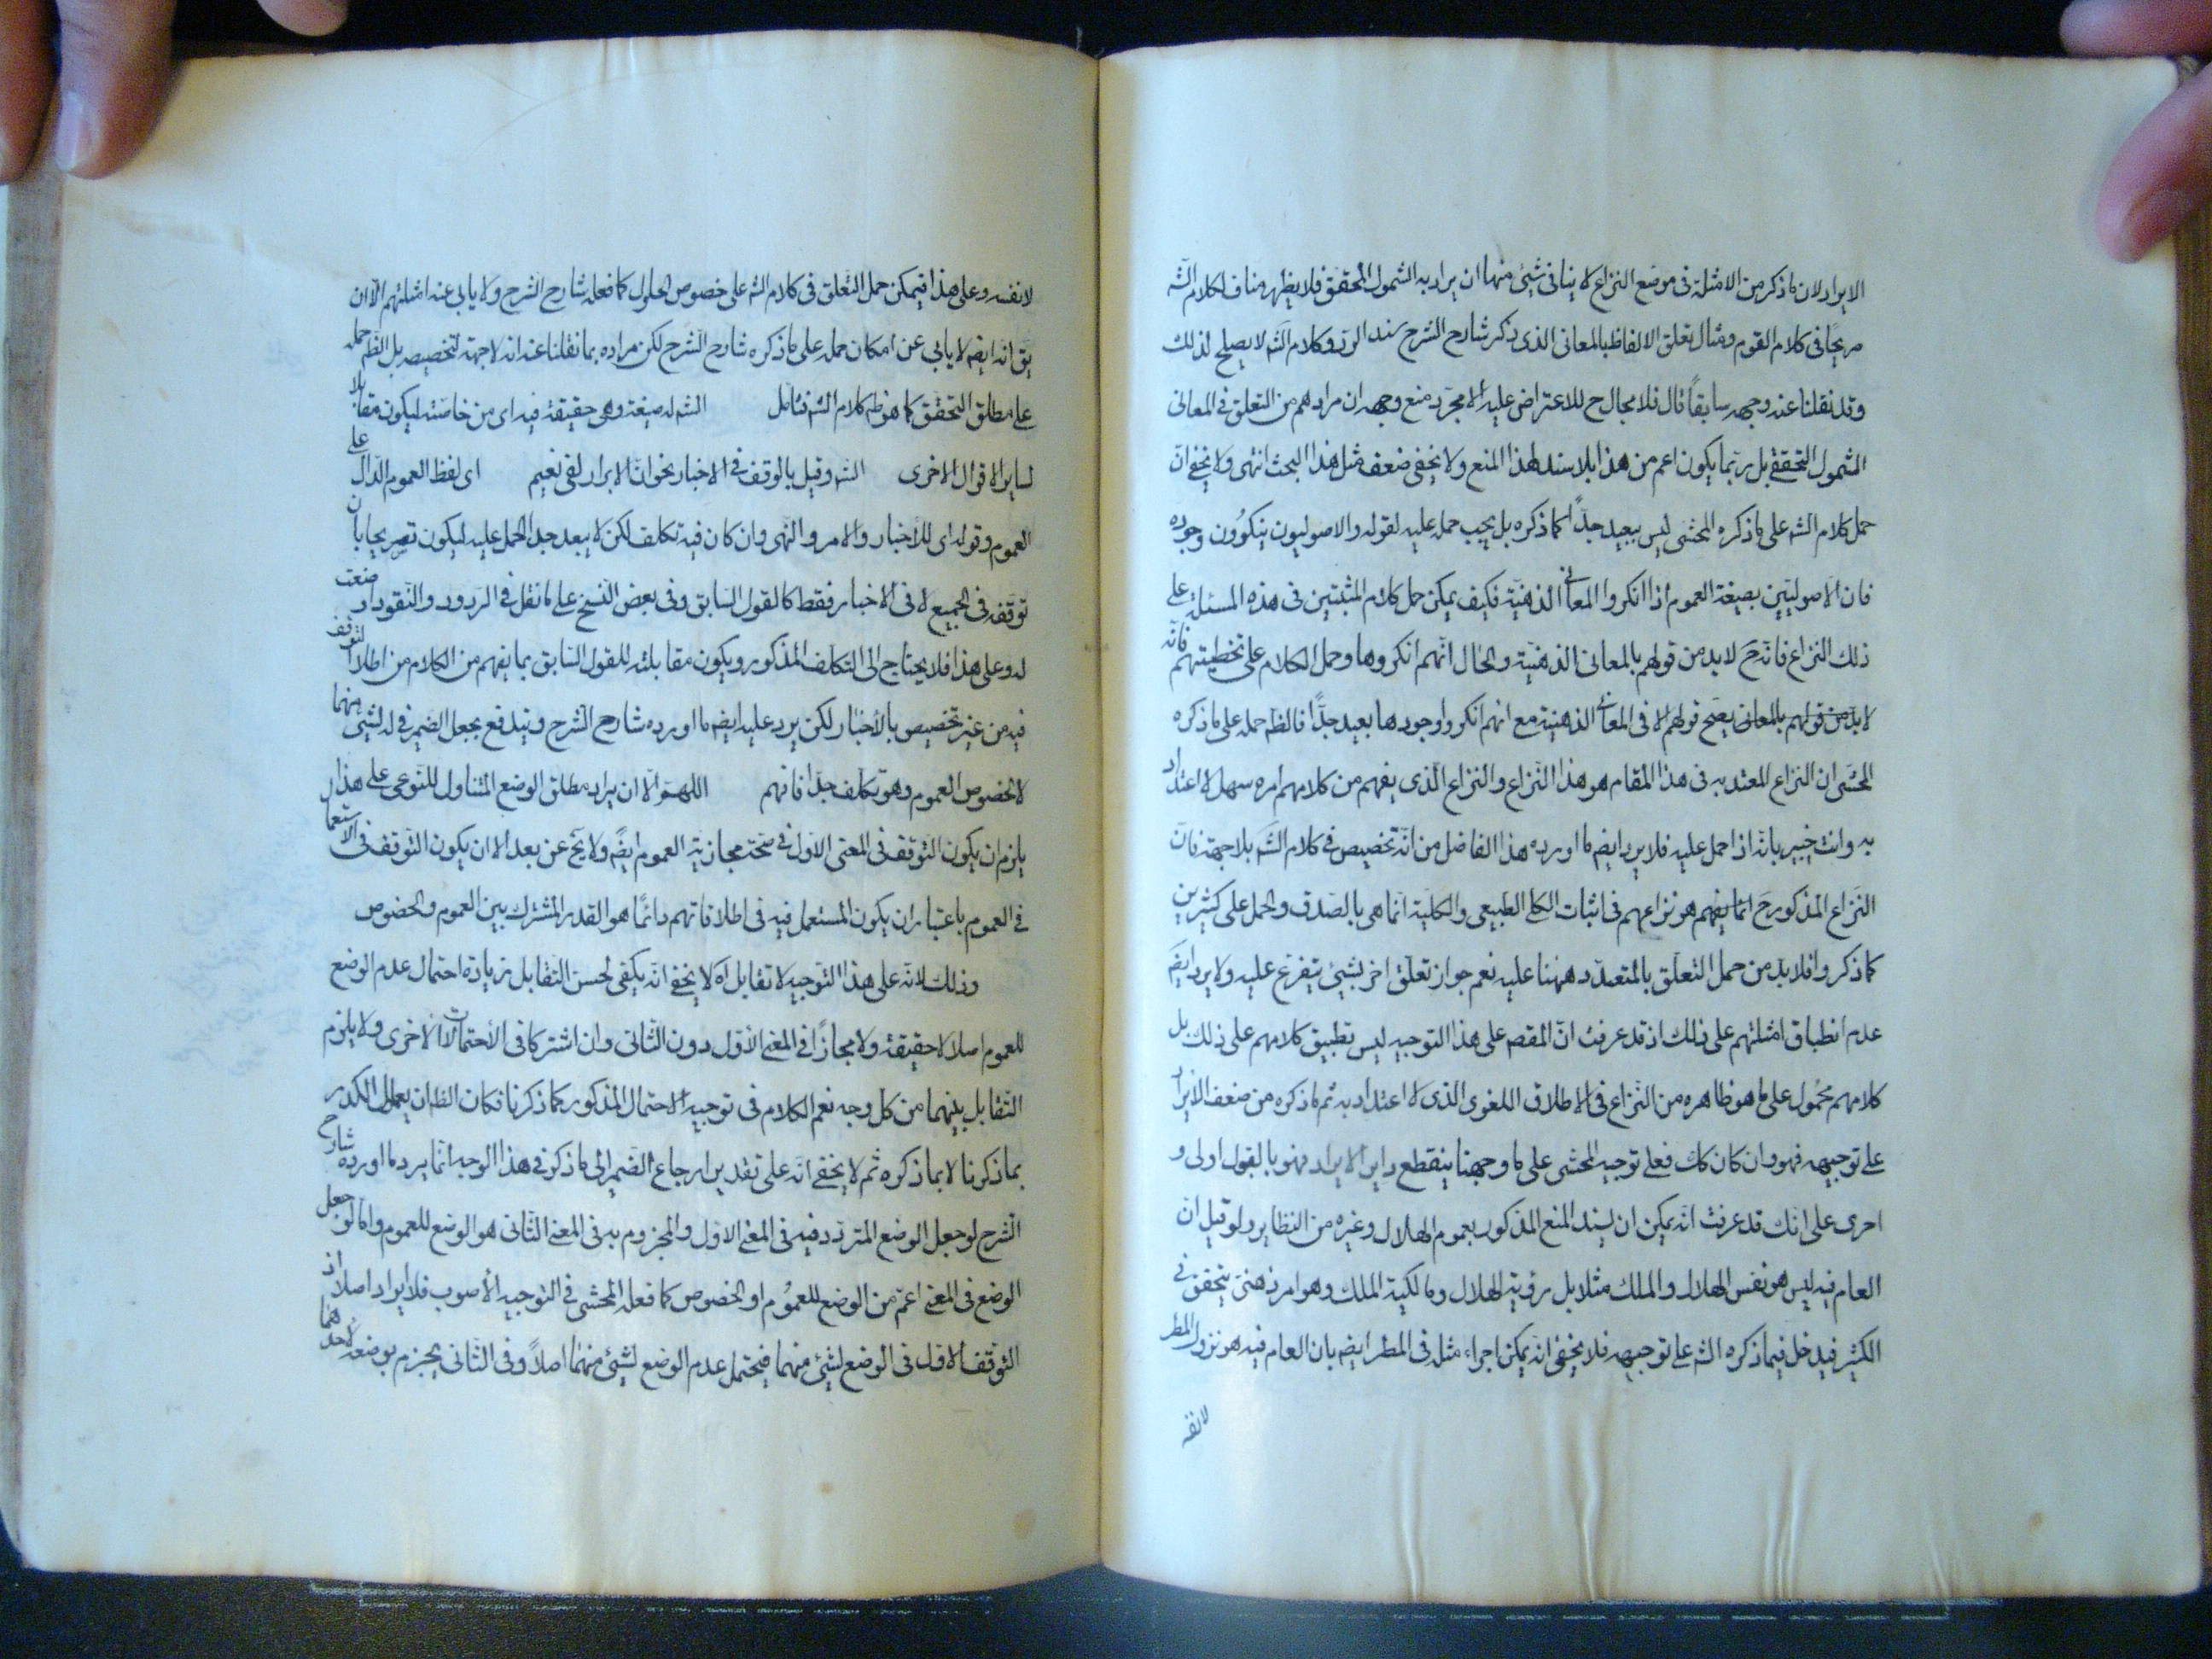 الايراد لان ما ذكر من الامثلة فى موضع النزاع لا ينافى شيئ منها ان يراد به الشمول المحقق فلا يظهر مناف لكلام الشه
صريحا فى كلام القوم ومثال تعلق الالفاظ بالمعانى الذى ذكر شارح الشرح سند الرد وكلام الشه لا يصلح لذلك
وقد نقلنا عنه وجهه سابقاً قال فلا مجال ح للاعتراض عليه الا مجرد منع وجهه ان مرادهم من التعلق فى المعانى
الشمول التحققى بل ربما يكون اعم من هذا بلا سند لهذا المنع ولا يخفى ضعف مثل هذا البحث انتهى ولا يخفى ان
حمل كلام الشه على ما ذكره المحشى ليس ببعيد جداً كما ذكره بل يجب حمله عليه لقوله والاصوليون ينكرون وجوده
فان الاصوليين بصيغة العموم اذا انكروا المعانى الذهنية فكيف يمكن حمل كلام المثبتين فى هذه المسئلة على
ذلك النزاع فانه ح لابد من قولهم بالمعانى الذهنية والحال انهم انكروها وحمل الكلام على تخطيتهم فانه
لابد من قولهم بالمعانى يصح قولهم لا فى المعانى الذهنية مع انهم انكروا وجودها بعيد جداً فالظه حمله على ما ذكره
المحشى ان النزاع المعتد به فى هذا المقام هو هذا النزاع والنزاع الذى يفهم من كلامهم امره سهل لا اعتداد
به وانت خبير بانه اذا حمل عليه فلا يرد ايضه ما اورده هذا الفاضل من انه تخصيص فى كلام الشه بلا جهة فان
النزاع المذكور ح انما يفهم هو نزاعهم فى اثبات الكلى الطبيعى والكلية انما هى بالصدق والحمل على كثيرين
كما ذكروا فلا بد من حمل التعلق بالمتعدد ههنا عليه نعم جواز تعلق اخر بشيئ يتفرع عليه ولا يرد ايضه
عدم انطباق امثلتهم على ذلك اذ قد عرفت ان المقصه على هذا التوجيه ليس تطبيق كلامهم على ذلك بل
كلامهم محمول على ما هو ظاهره من النزاع فى الاطلاق اللغوى الذى لا اعتداد به ثم ما ذكره من ضعف الايراد
على توجيهه فهو وان كان كك فعلى توجيه المحشى على ما وجهنا ينقطع دابر الايراد فهو بالقبول اولى و
احرى على انك قد عرفت انه يمكن ان يسند المنع المذكور بعموم الهلال وغيره من النظاير ولو قيل ان
العام فيه ليس هو نفس الهلال والملك مثلا بل رؤية الهلال ومالكية الملك وهو امر ذهنى يتحقق فى
الكثير فيدخل فيما ذكره الشه على توجيهه فلا يخفى انه يمكن اجراء مثله فى المطر ايضه بان العام فيه هو نزول المطر
لا نفسه
لا نفسه وعلى هذا فيمكن حمل التعلق فى كلام الشه على خصوص الحلول كما فعله شارح الشرح ولا يابى عنه امثلتهم الا ان
يق انه ايضه لا يابى عن امكان حمله على ما ذكره شارح الشرح لكن مراده بما نقلنا عنه انه لا جهة لتخصيصه بل الظه حمله
على مطلق التحقق كما هو ظه كلام الشه فتامل الشه له صيغة وهى حقيقة فيه اى من خاصته ليكون مقابلا
لساير الاقوال الاخرى الشه وقيل بالوقف فى الاخبار نحو ان الابرار لفى نعيم اى لفظ العموم الدال على
العموم وقوله اى للاخبار والامر والنهى وان كان فيه تكلف لكن لا يبعد جدا الحمل عليه ليكون تصريحا بان
توقفه فى الجميع لا فى الاخبار فقط كالقول السابق وفى بعض النسخ على ما نقل فى الردود والنقود او صنعت
له وعلى هذا فلا يحتاج الى التكلف المذكور ويكون مقابلته للقول السابق بما يفهم من الكلام من اطلاق التوقف
فيه من غير تخصيص بالاخبار لكن يرد عليه ايضه ما اورده شارح الشرح ويندفع بجعل الضمير فى له لشيئ منهما
لا لخصوص العموم وهو تكلف جدا فافهم اللهم الا ان يراد مطلق الوضع المتناول للنوعى على هذا
يلزم ان يكون التوقف فى المعنى الاول فى صحة مجازية العموم ايضً ولا يخ عن بعد الا ان يكون التوقف فى الاستعمال
فى العموم باعتبار ان يكون المستعمل فيه فى اطلاقاتهم دائما هو القدر المشترك بين العموم والخصوص
وذلك لانه على هذا التوجيه لا تقابل اه لا يخفى انه يكفى لحسن التقابل زيادة احتمال عدم الوضع
للعموم اصلا لا حقيقة ولا مجازاً فى المعنى الاول دون الثانى وان اشتركا فى الاحتمالات الاخرى ولا يلزم
التقابل بينهما من كل وجه نعم الكلام فى توجيه الاحتمال المذكور كما ذكرنا فكان الظه ان يعلل الكدر ح
بما ذكرنا لا بما ذكره ثم لا يخفى انه على تقدير ارجاع الضمير الى ما ذكر فى هذا الوجه انما يرد ما اورده شارح
الشرح لو جعل الوضع المتردد فيه فى المعنى الاول والمجزوم به فى المعنى الثانى هو الوضع للعموم واما لو جعل
الوضع فى المعنى اعم من الوضع للعموم او الخصوص كما فعله المحشى فى التوجيه الاصوب فلا ايراد اصلا اذ
التوقف الاول فى الوضع لشيئ منهما فيحتمل عدم الوضع لشيئ منهما اصلاً وفى الثانى يجزم بوضعه لاحدهما